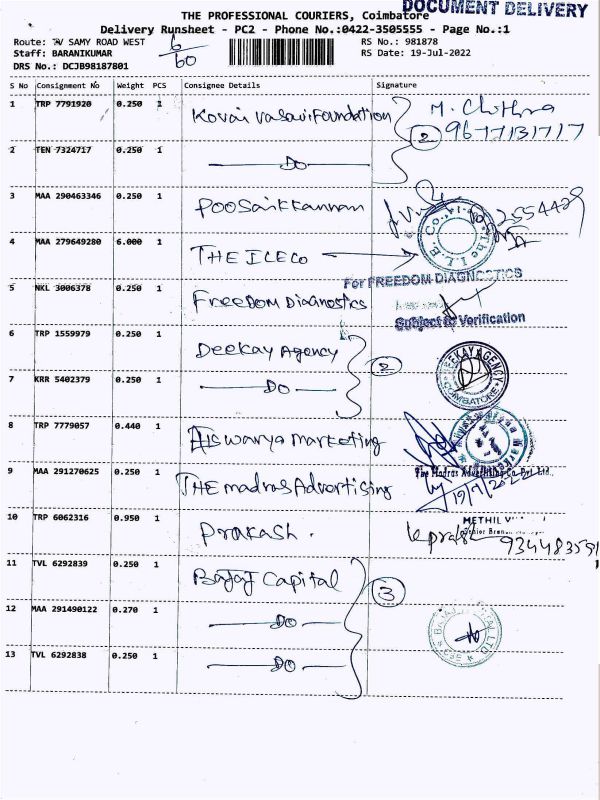 DOCUMENT DELIVERY
THE PROFESSIONAL COURIERS, Coimbatore
Delivery Runsheet - PC2 - Phone No.:0422-3505555 - Page No.:1
Route: TV SAMY ROAD WEST 6/60 RS No.: 981878
Staff: BARANIKUMAR RS Date: 19-Jul-2022
DRS No.: DCJB98187801
S No Consignment No Weight PCS Consignee Details Signature
1 TRP 7791920 0.250 1 Kovai Vasavi Foundation 2 M. Chithra
9677131717
2 TEN 7324717 0.250 1 DO
3 MAA 290463346 0.250 1 Poosaikkannan 2554429
4 MAA 279649280 6.000 1 THE I L E Co
For FREEDOM DIAGNOSTICS
5 NKL 3006378 0.250 1 Freedom Diagnostics
Subject to Verification
6 TRP 1559979 0.250 1 Deekay Agency 2 DEEKAY AGENCY COIMBATORE
7 KRR 5402379 0.250 1 DO
8 TRP 7779057 0.440 1 Aiswarya marketing
The Madras Advertising Co. Pvt. Ltd.,
9 MAA 291270625 0.250 1 THE madras Advertising 19/7/2022
10 TRP 6062316 0.950 1 Prakash.
11 TVL 6292839 0.250 1 Bajaj Capital 3
12 MAA 291490122 0.270 1 DO
13 TVL 6292838 0.250 1 DO